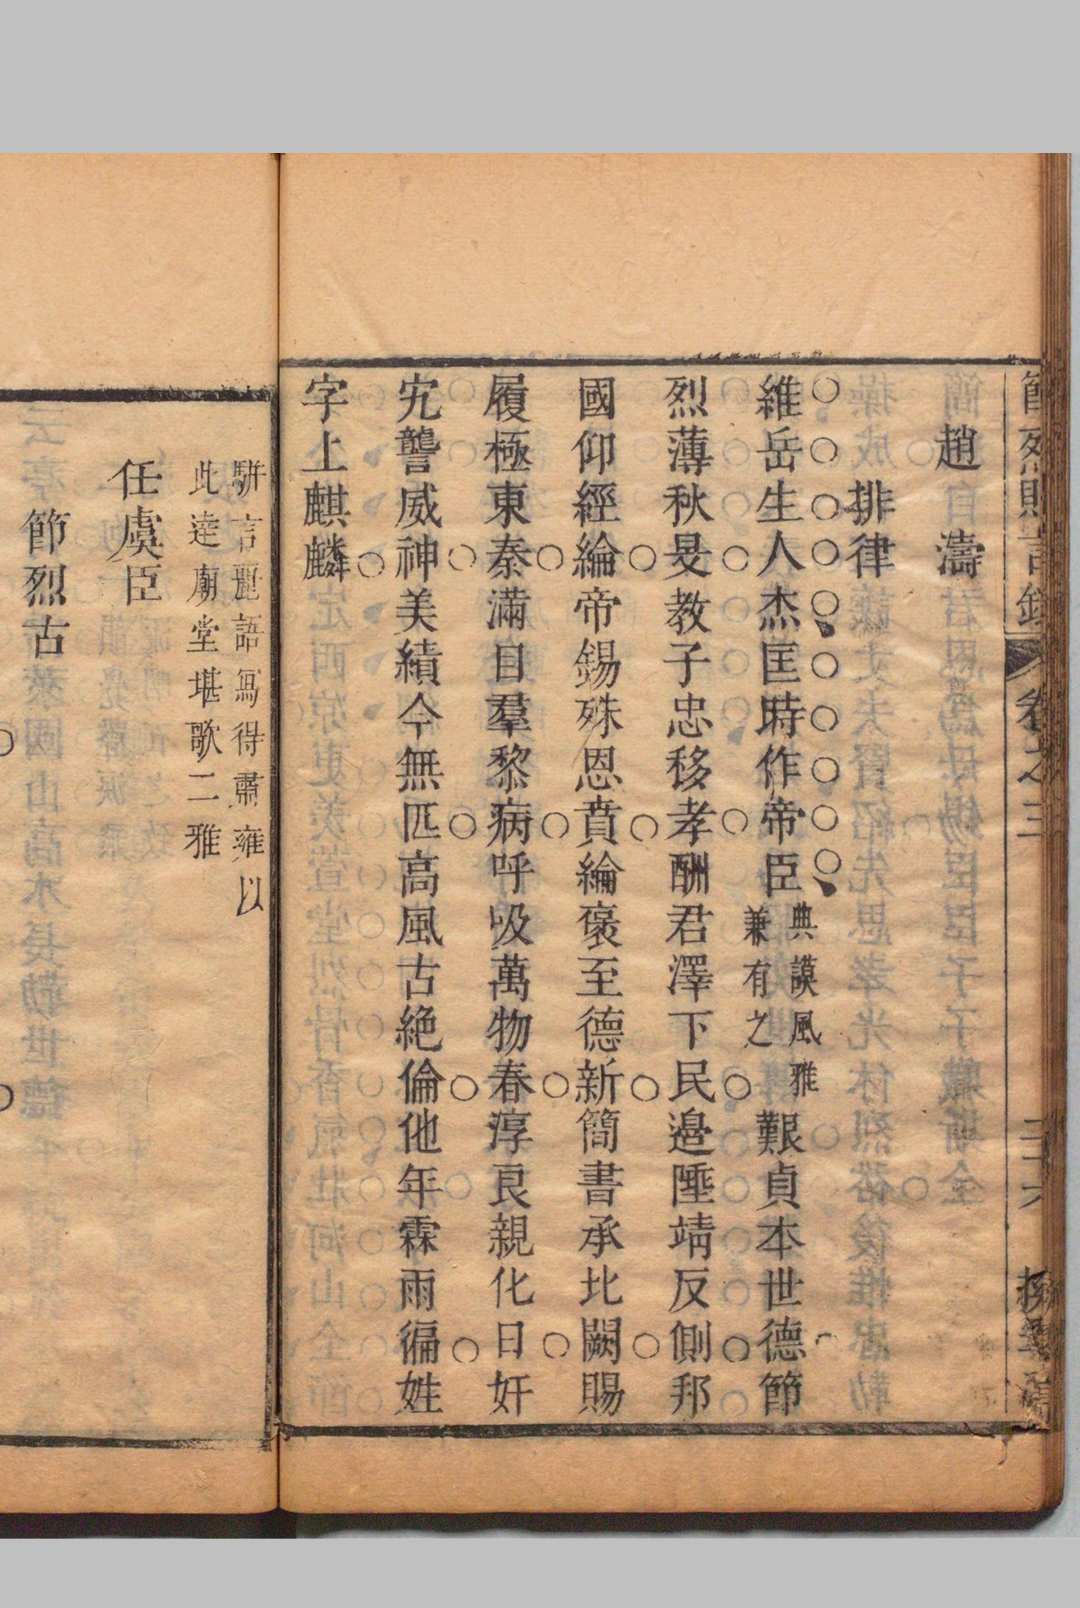 趙濤
排律
維岳生人杰匡時作帝臣典謨風雅兼有之艱貞本世德節
烈薄秋旻教子忠移孝酬君澤下民邊陲靖反側邦
國仰經綸帝錫殊恩賁綸褒至德新簡書承北闕賜
履極東秦滿目羣黎病呼吸萬物春淳良親化日奸
宄讋威神美績今無匹高風古絶倫他年霖雨徧姓
字上麒麟
駢言麗語寫得肅雍以
此逹廟堂堪歌二雅
任虞臣
節烈古